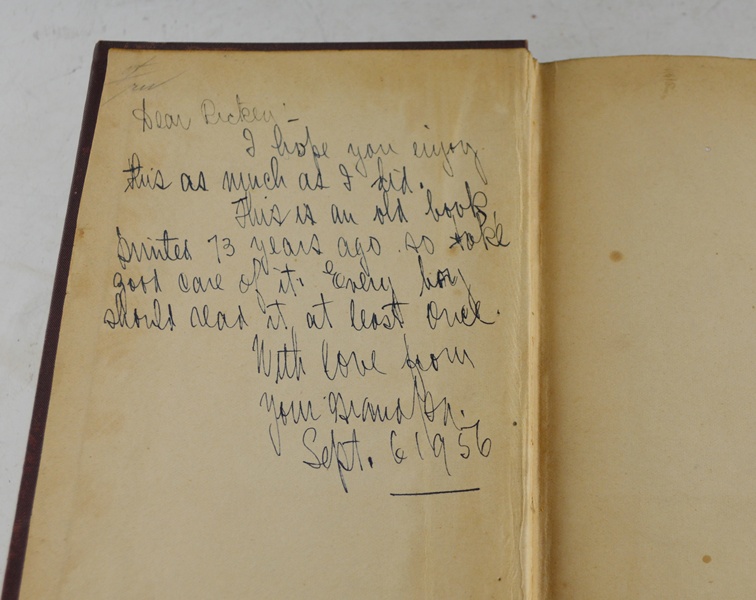 Dear Rickey:-
I hope you enjoy
this as much as I did.
This is an old book,
printed 73 years ago so take
good care of it. Every boy
should read it at least once.
With love from
your Grandpa.
Sept. 6 1956